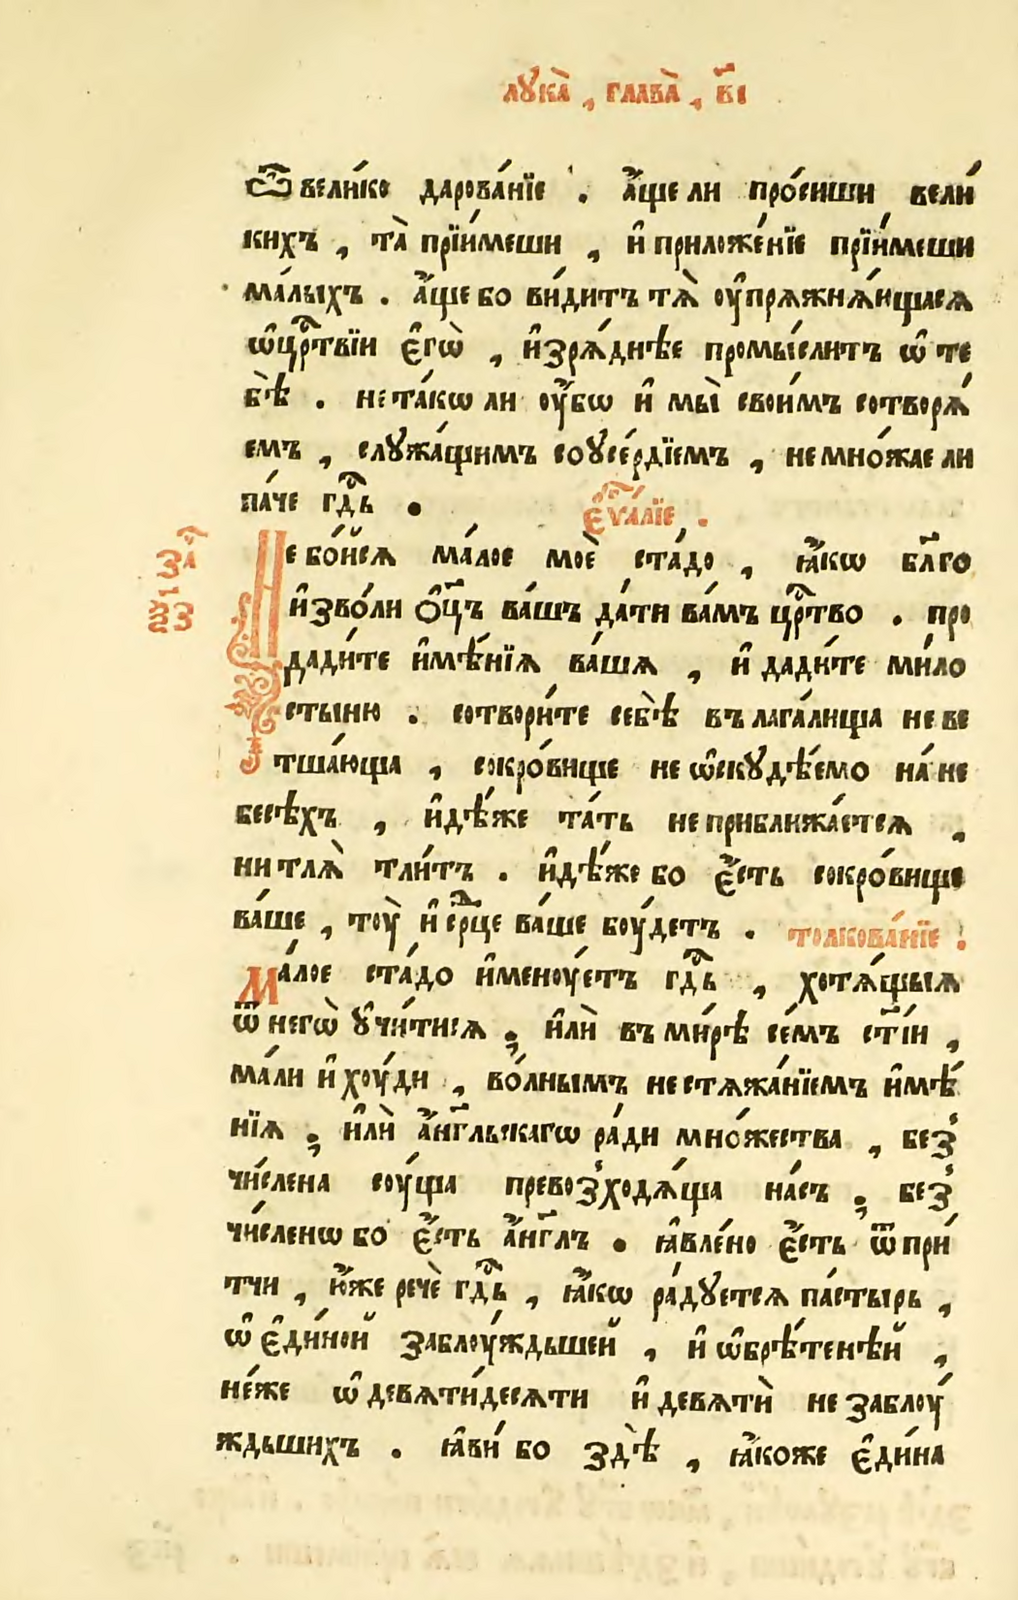 лꙋка̀ , глава̀ , в҃і
ѿ вели́ко дарова́нїе . а҆́ще ли про́сиши вели́
кихъ , та̀ прїи́меши , и҆ приложе́нїе прїи́меши
ма́лыхъ . а҆́ще бо ви́дитъ тѧ̀ оу҆пражнѧ́ющасѧ
ѡ҆ црⷭ҇твїи є҆гѡ̀ , и҆зрѧ́днѣе промы́слитъ ѡ҆ те
бѣ̀ . не та́кѡ ли оу҆́бѡ и҆ мы̀ свои́мъ сотворѧ́
емъ , слꙋжа́щимъ со оусе́рдїемъ , не мно́жае ли
па́че гдⷭ҇ь .
є҆ѵⷢ҇а́лїе .
Не бо́йсѧ ма́лое моѐ ста́до , ꙗ҆́кѡ бл҃го
и҆зво́ли ѻ҆ц҃ъ ва́шъ да́ти ва́мъ црⷭ҇тво . про
дади́те и҆мѣ́нїѧ ва́шѧ , и҆ дади́те ми́ло
стыню . сотвори́те себѣ̀ въ лага́лища не ве
тша́юща , сокро́вище не ѡ҆скꙋдѣ́емо на́ не
бесѣ́хъ , и҆дѣ́же та́ть не приближа́етсѧ ,
ни тлѧ̀ тли́тъ . и҆дѣ́же бо є҆́сть сокро́вище
ва́ше , тоу̀ и҆ срⷣце ва́ше боу́детъ .
толкова́нїе .
Ма́лое ста́до и҆меноу́етъ гдⷭ҇ь , хотѧ́щыѧ
ѿ негѡ̀ ᲂу҆чи́тисѧ ; и҆лѝ въ ми́рѣ се́мъ ст҃і́и ,
ма́ли и҆ хоу́ди , во́лнымъ нестѧжа́нїемъ и҆мѣ́
нїѧ ; и҆лѝ а҆́нг҃льскагѡ ра́ди мно́жества , без
чи́слена соу́ща превозходѧ́ща на́съ ; без
чи́сленѡ бо є҆́сть а҆́нг҃лъ . ꙗ҆вле́но є҆́сть ѿ при́
тчи , ю҆́же речѐ гдⷭ҇ь , ꙗ҆́кѡ ра́дꙋетсѧ па́стырь ,
ѡ҆ є҆ди́ной заблоу́ждьшей , и҆ ѡ҆брѣ́тенѣй ,
не́же ѡ҆ девѧти́десѧти и҆ девѧтѝ не заблоу́
ждьшихъ . ꙗ҆ви́ бо здѣ̀ , ꙗ҆́коже є҆ди́на
за́ч
ѯ҃з